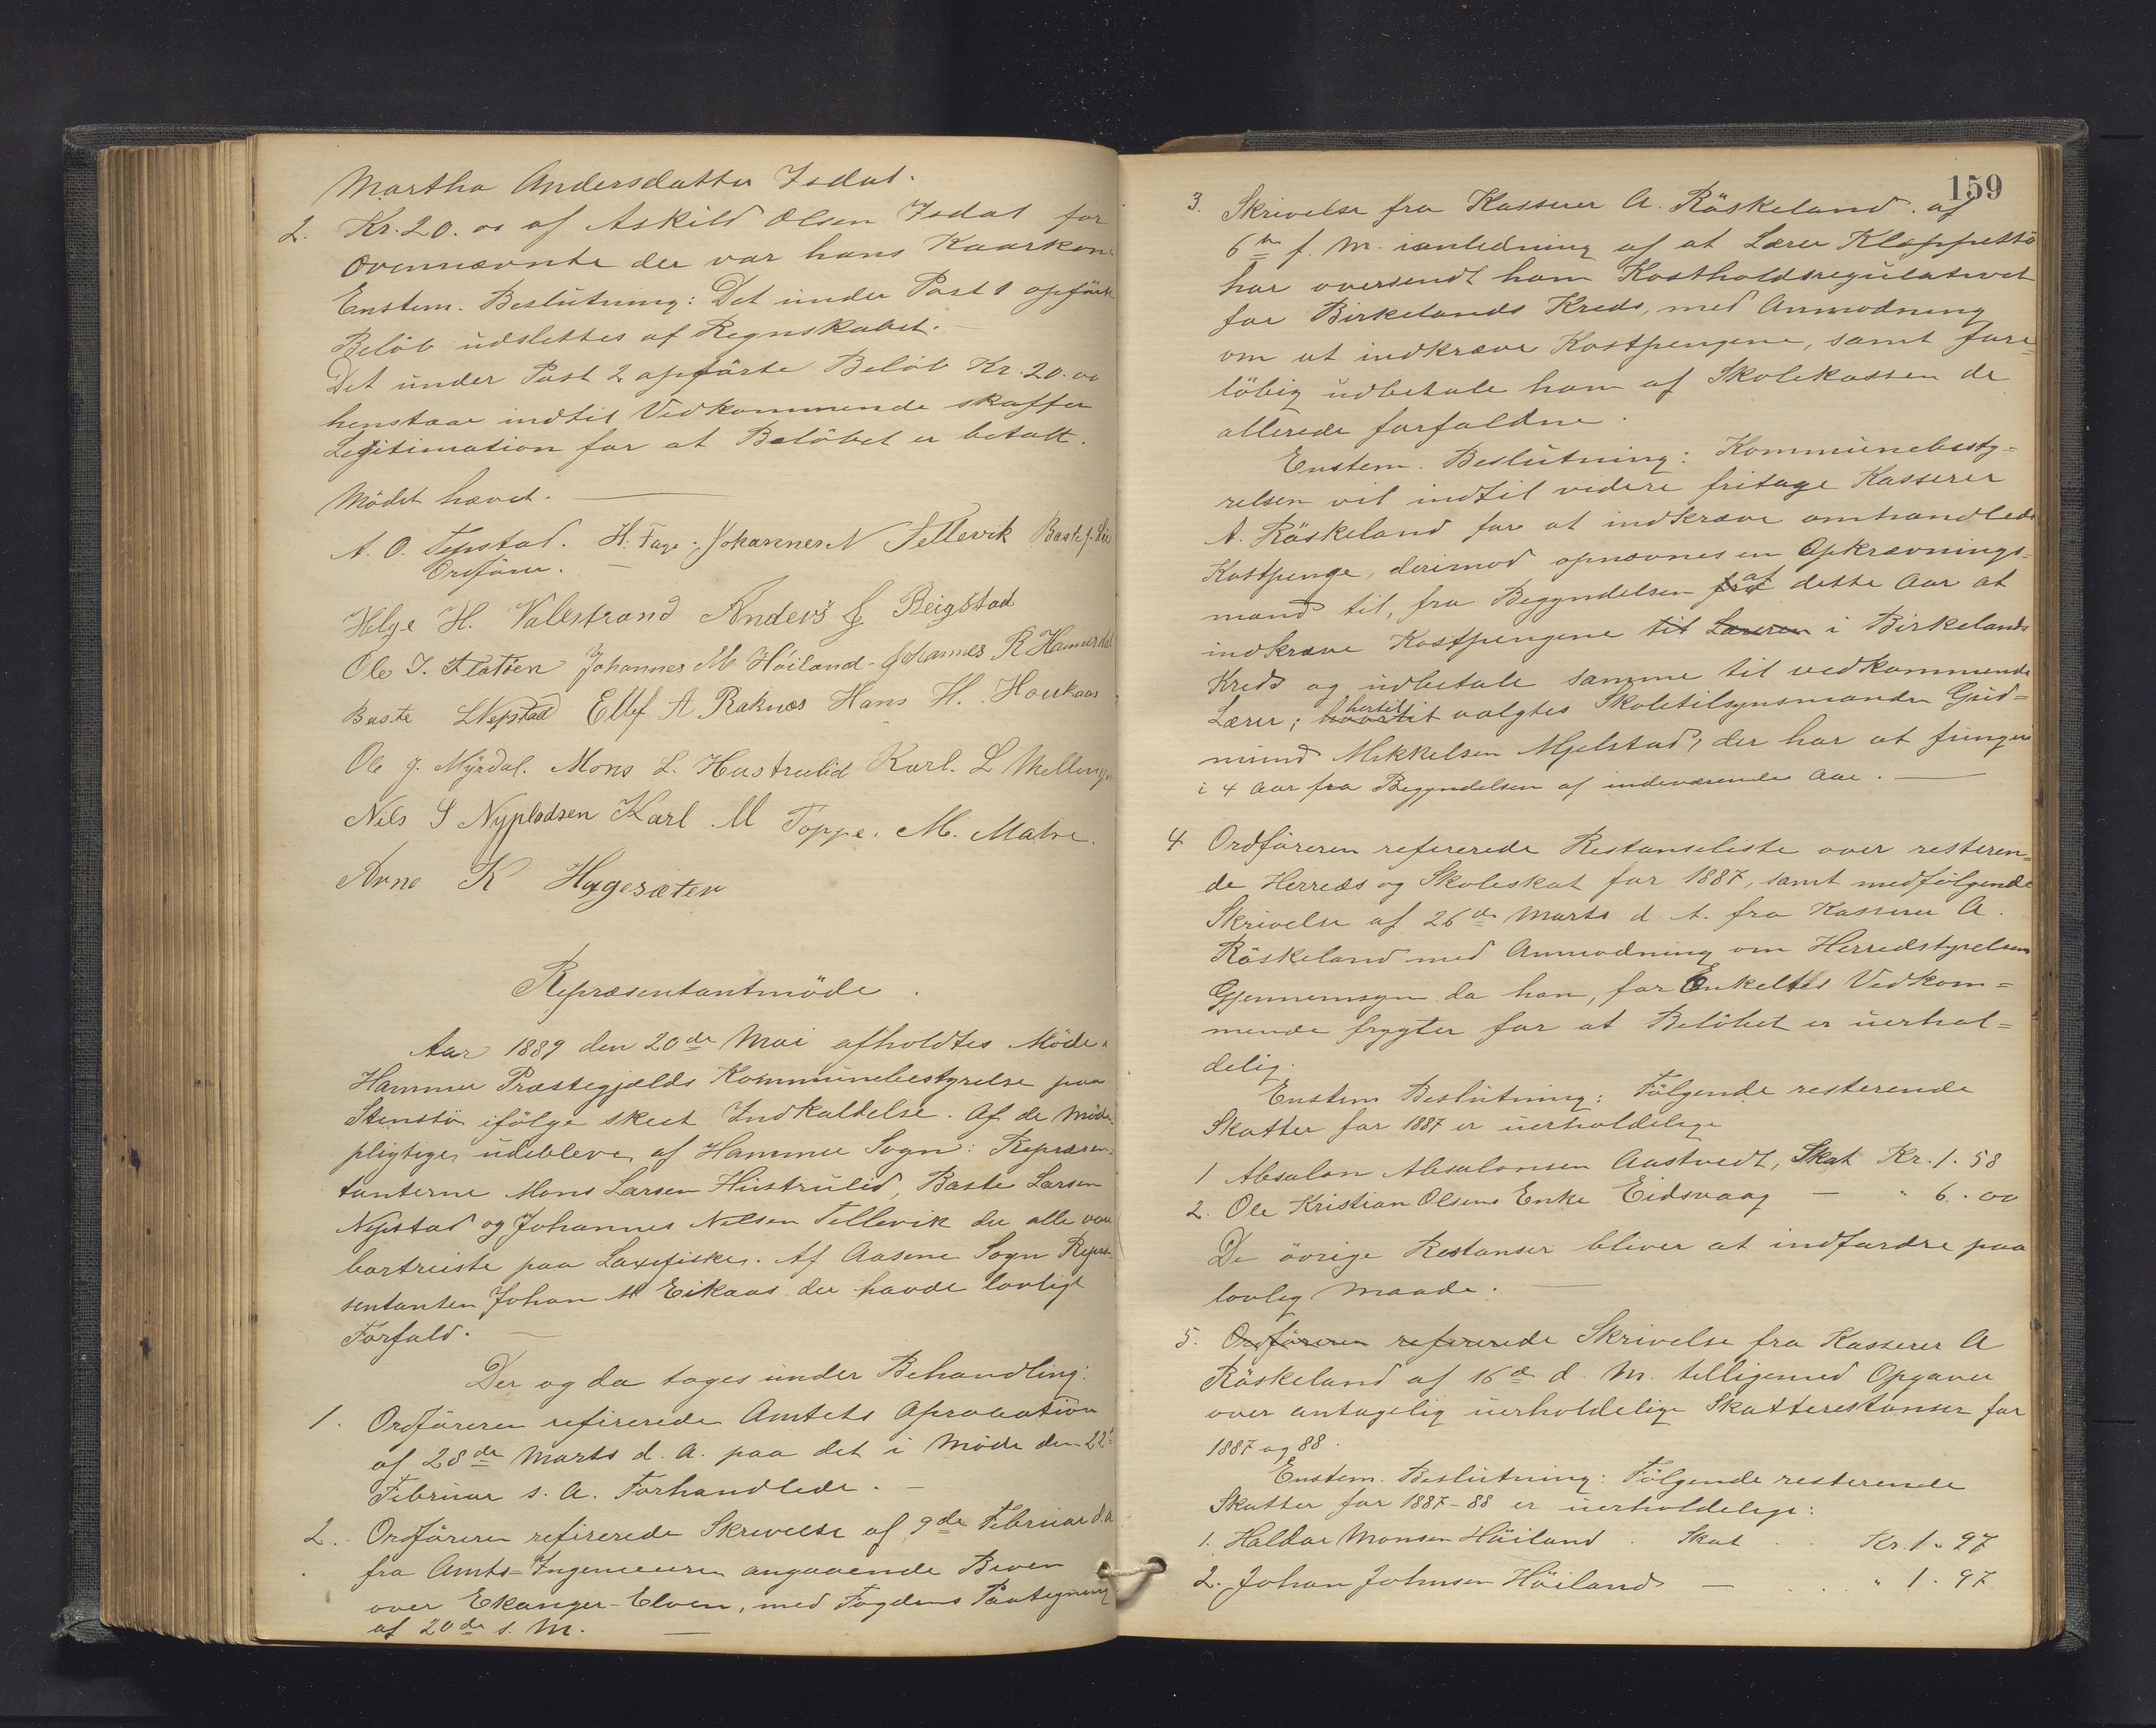 Martha Andersdatter Isdal.
2. Kr. 20.00 af Askild Olsen Isdal for
Ovennævnte der var hans Kaarkone
Enstem. Beslutning: Det under Post 1 opførte
Beløb udslettes af Regnskabet.
Det under Post 2 opførte Beløb Kr. 20.00
henstaar indtil Vedkommende skaffer
Legitimation for at Beløbet er betalt.
Mødet hævet.
A. O. Tepstad. H. Fage. Johannes N Tellevik Baste J.
Ordfører.
Helge H. Valestrand Anders J Reigstad
Ole I. Flatøen Johannes M Høiland. Johannes R Hamersdal
Baste L Nepstad Ellef A Raknes Hans H. Houkaas
Ole J. Myrdal. Mons L. Hustrulid Karl. L Mellingen
Nils S Nyplodsen Karl M Toppe. M. Matre.
Arne K Hagesæter
Repræsentantmøde.
Aar 1889 den 20de Mai afholdtes Møde i
Hammer Præstegjælds Kommunebestyrelse paa
Stenstø ifølge skeet Indkaldelse. Af de Møde
pligtige udebleve af Hammer Sogn: Repræsen-
tanterne Mons Larsen Hustrulid, Baste Larsen
Nepstad og Johannes Nilsen Tellevik der alle vare
bortreiste paa Laxefiske. Af Aasene Sogn Repræ-
sentanten Johan M Eikaas der havde lovligt
Forfald.
Der og da toges under Behandling:
1. Ordføreren refererede Amtets Aprobation
af 28de Marts d. A. paa det i Møde den 22
Februar s. A. Forhandlede.
2. Ordføreren refirerede Skrivelse af 9de Februar d. A
fra Amts-Ingeniøren angaaende Broen
over Ekanger-Elven, med Fogdens Paategning
af 20de s. M.
159
3. Skrivelse fra Kasserer A. Røskeland. af
6te f. M. ianledning af at Lærer Kleppestø
har oversendt ham Kostholdsregulativet
for Birkelands Kreds, med Anmodning
om at indkræve Kostpengene, samt fore-
løbig udbetale ham af Skolekassen de
allerede forfaldne.
Enstem. Beslutning: Kommunebesty-
relsen vil indtil videre fritage Kasserer
A. Røskeland for at indkræve omhandlede
Kostpenge, derimod opnævnes en Opkrævnings-
mand til, fra Begyndelsen af dette Aar at
indkræve Kostpengene til Læreren i Birkelands
Kreds og udbetale samme til vedkommende
Lærer; hertil valgtes Skoletilsynsmanden Gud-
mund Mikkelsen Mjelstad, der har at fungere
i 4 Aar fra Begyndelsen af indeværende Aar.
4 Ordføreren refererede Restanseliste over resteren-
de Herreds og Skoleskat for 1887, samt medfølgende
Skrivelse af 26de Marts d. A. fra Kasserer A.
Røskeland med Anmodning om Herredstyrelsens
Gjennemsyn da han, for Enkeltes Vedkom-
mende frygter for at Beløbet er uerhol-
delig.
Enstem Beslutning: Følgende resterende
Skatter for 1887 er uerholdelige
1 Absalon Absalonsen Aastvedt, Skat Kr. 1.58
2. Ole Kristian Olsens Enke Eidsvaag — " 6.00
De øvrige Restanser bliver at indfordre paa
lovlig Maade.
5. Ordføreren refererede Skrivelse fra Kasserer A
Røskeland af 16de d. M. tilligemed Opgaver
over antagelig uerholdelige Skatterestanser for
1887 og 88.
Enstem. Beslutning: Følgende resterende
Skatter for 1887-88 er uerholdelige:
1. Haldor Monsen Høiland. Skat . . Kr. 1.97
2. Johan Johnsen Høiland — . . . " 1.97